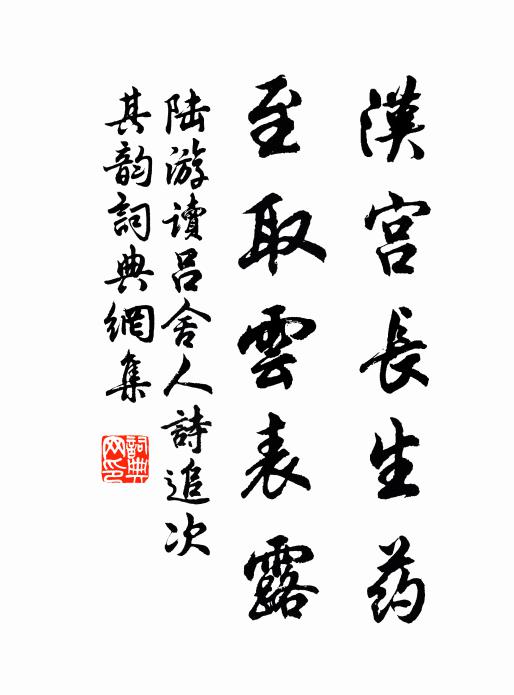 漢宮長生药
至取雲表露
陆游讀吕舍人詩追次
其韵詞典網集
詞典网印